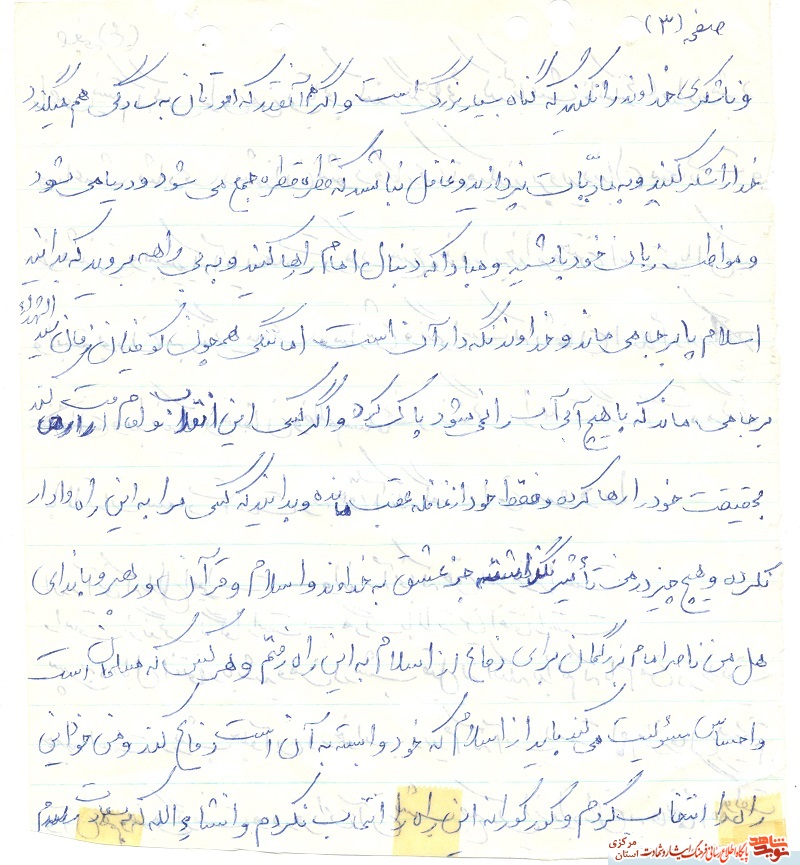 صفحه (۳)
و ناشکری خداوند را نکنید که گناه بسیار بزرگ است و اگر هم آنقدر که امورتان به سادگی هم میگذرد
خدا را شکر کنید و به مادیات نپردازید و غافل نباشید که قطره قطره جمع می شود و دریا می شود
و مواظب زبان خود باشید و مبادا که دنبال امام را رها کنید و به بی راهه بروید که بدانید
اسلام پا برجا می ماند و خداوند نگه دار آن است اما ننگی همچون کوفیان زمان سید الشهداء
بر جا می ماند که با هیچ آبی آن را نمی شود پاک کرد و اگر کسی این انقلاب و امام را رها کند
بحقیقت خود را رها کرده و فقط خود از غافله عقب مانده و بدانید که کسی مرا به این راه وادار
نکرده و هیچ چیز در من تأثیر نگذاشته جز عشق به خداوند و اسلام و قرآن و رهبر و با ندای
هل من ناصر امام بزرگمان برای دفاع از اسلام به این راه رفتم و هر کس که مسلمان است
و احساس مسئولیت می کند باید از اسلام که خود وابسته به آن است دفاع کند و من خود این
راه را انتخاب کردم و کورکورانه این راه را انتخاب نکردم و انشاء الله که به سعادت برسم
نوید شاهد
پایگاه اطلاع رسانی فرهنگ ایثار و شهادت استان مرکزی